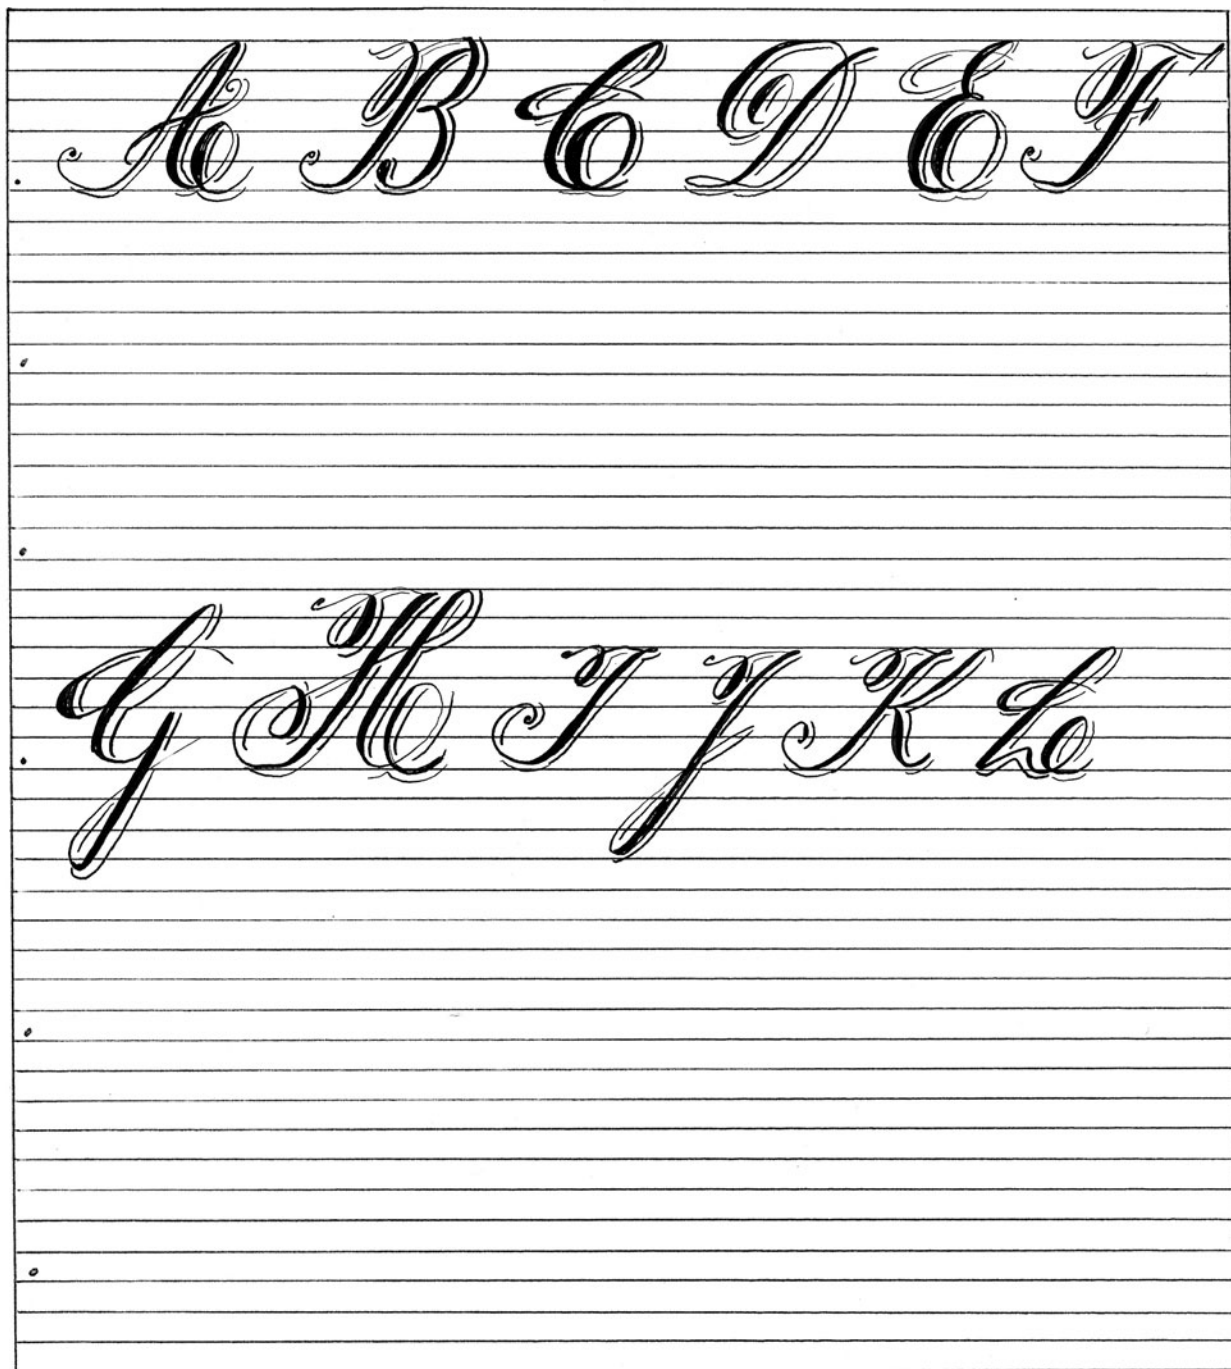 A B C D E F
G H I J K L